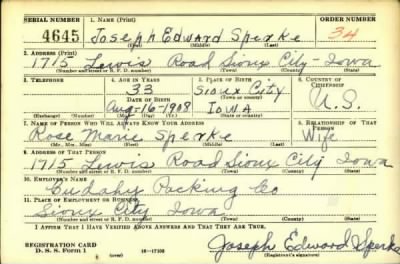 SERIAL NUMBER 1. NAME (Print) ORDER NUMBER
4645 Joseph Edward Sperke 34
(First) (Middle) (Last)
2. ADDRESS (Print)
1715 Lewis Road Sioux City - Iowa
(Number and street or R. F. D. number) (Town) (County) (State)
3. TELEPHONE 4. AGE IN YEARS 5. PLACE OF BIRTH 6. COUNTRY OF CITIZENSHIP
33 Sioux City
(Town or county)
DATE OF BIRTH
Aug-16-1908 IOWA U.S.
(Exchange) (Number) (Mo.) (Day) (Yr.) (State or country)
7. NAME OF PERSON WHO WILL ALWAYS KNOW YOUR ADDRESS 8. RELATIONSHIP OF THAT PERSON
Rose Marie Sperke Wife
(Mr., Mrs., Miss) (First) (Middle) (Last)
9. ADDRESS OF THAT PERSON
1715 Lewis Road Sioux City Iowa
(Number and street or R. F. D. number) (Town) (County) (State)
10. EMPLOYER'S NAME
Cudahy Packing Co
11. PLACE OF EMPLOYMENT OR BUSINESS
Sioux City Iowa
(Number and street or R. F. D. number) (Town) (County) (State)
I AFFIRM THAT I HAVE VERIFIED ABOVE ANSWERS AND THAT THEY ARE TRUE.
REGISTRATION CARD
D. S. S. Form 1 (over) 16-17105 Joseph Edward Sperke
(Registrant's signature)